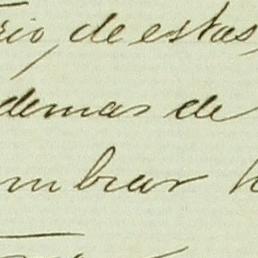 rio, de estas,
demas de
mbrar h